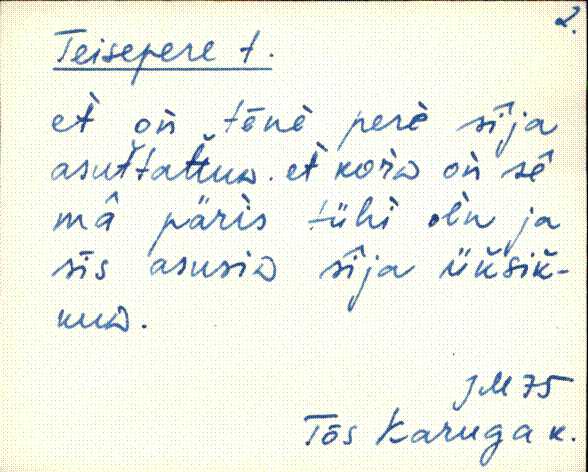 2.
Teisepere t.
et̀ oǹ tēnè perè sîja
asut̆tat̆tuᴅ. et̀ korᴅ oǹ sê
mâ pär̀is tühi oln ja
sīs asusiᴅ sîja ük̆sik̆-
kuᴅ.
JM 75
Tõs Karuga k.